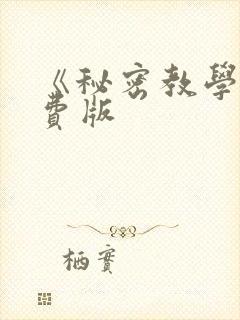 《秘密教學
費版
栖實